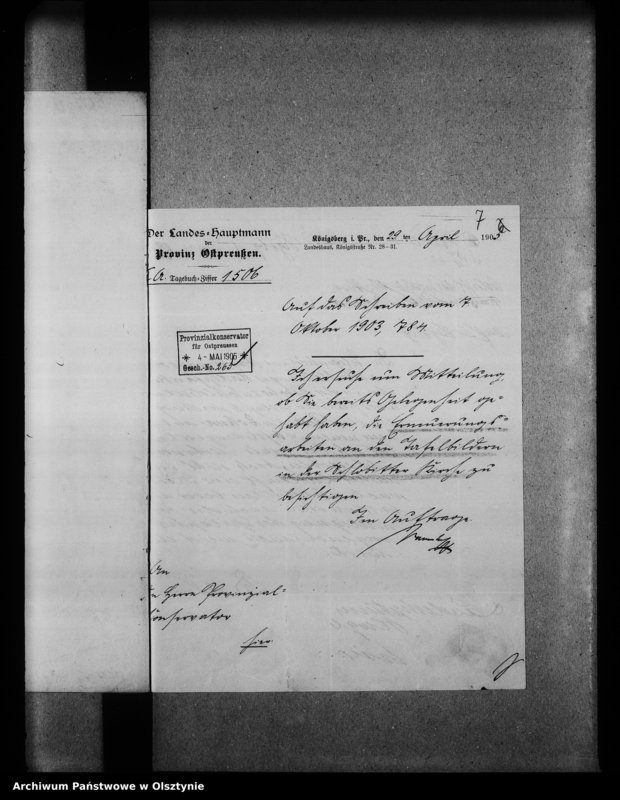 7
Der Landes-Hauptmann
der
Provinz Ostpreußen.
Tagebuch-Ziffer 1506
Königsberg i. Pr., den 29 ten April 190
Landeshaus, Königstraße Nr. 28–31.
Auf das Schreiben vom 7
Oktober 1903, 784.
Provinzialkonservator
für Ostpreussen
* 4 - MAI 1905 *
Gesch.-No. 265
Ich ersuche um Mitteilung,
ob Sie bereits Gelegenheit ge-
habt haben, die Erneuerungs-
arbeiten an den Tafelbildern
in der Schlobitter Kirche zu
besichtigen
Im Auftrage
An
Herrn Provinzial-
Conservator
hier
Archiwum Państwowe w Olsztynie